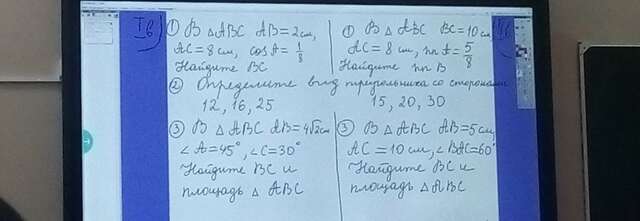 I в
① В △ ABC AB = 2 см,
AC = 8 см, cos A = 1/8
Найдите BC
① В △ ABC BC = 10 см,
AC = 8 см, sin A = 5/8
Найдите sin B
② Определите вид треугольника со сторонами
12, 16, 25
15, 20, 30
③ В △ ABC AB = 4√2 см,
∠A = 45°, ∠C = 30°
Найдите BC и
площадь △ ABC
③ В △ ABC AB = 5 см,
AC = 10 см, ∠BAC = 60°
Найдите BC и
площадь △ ABC